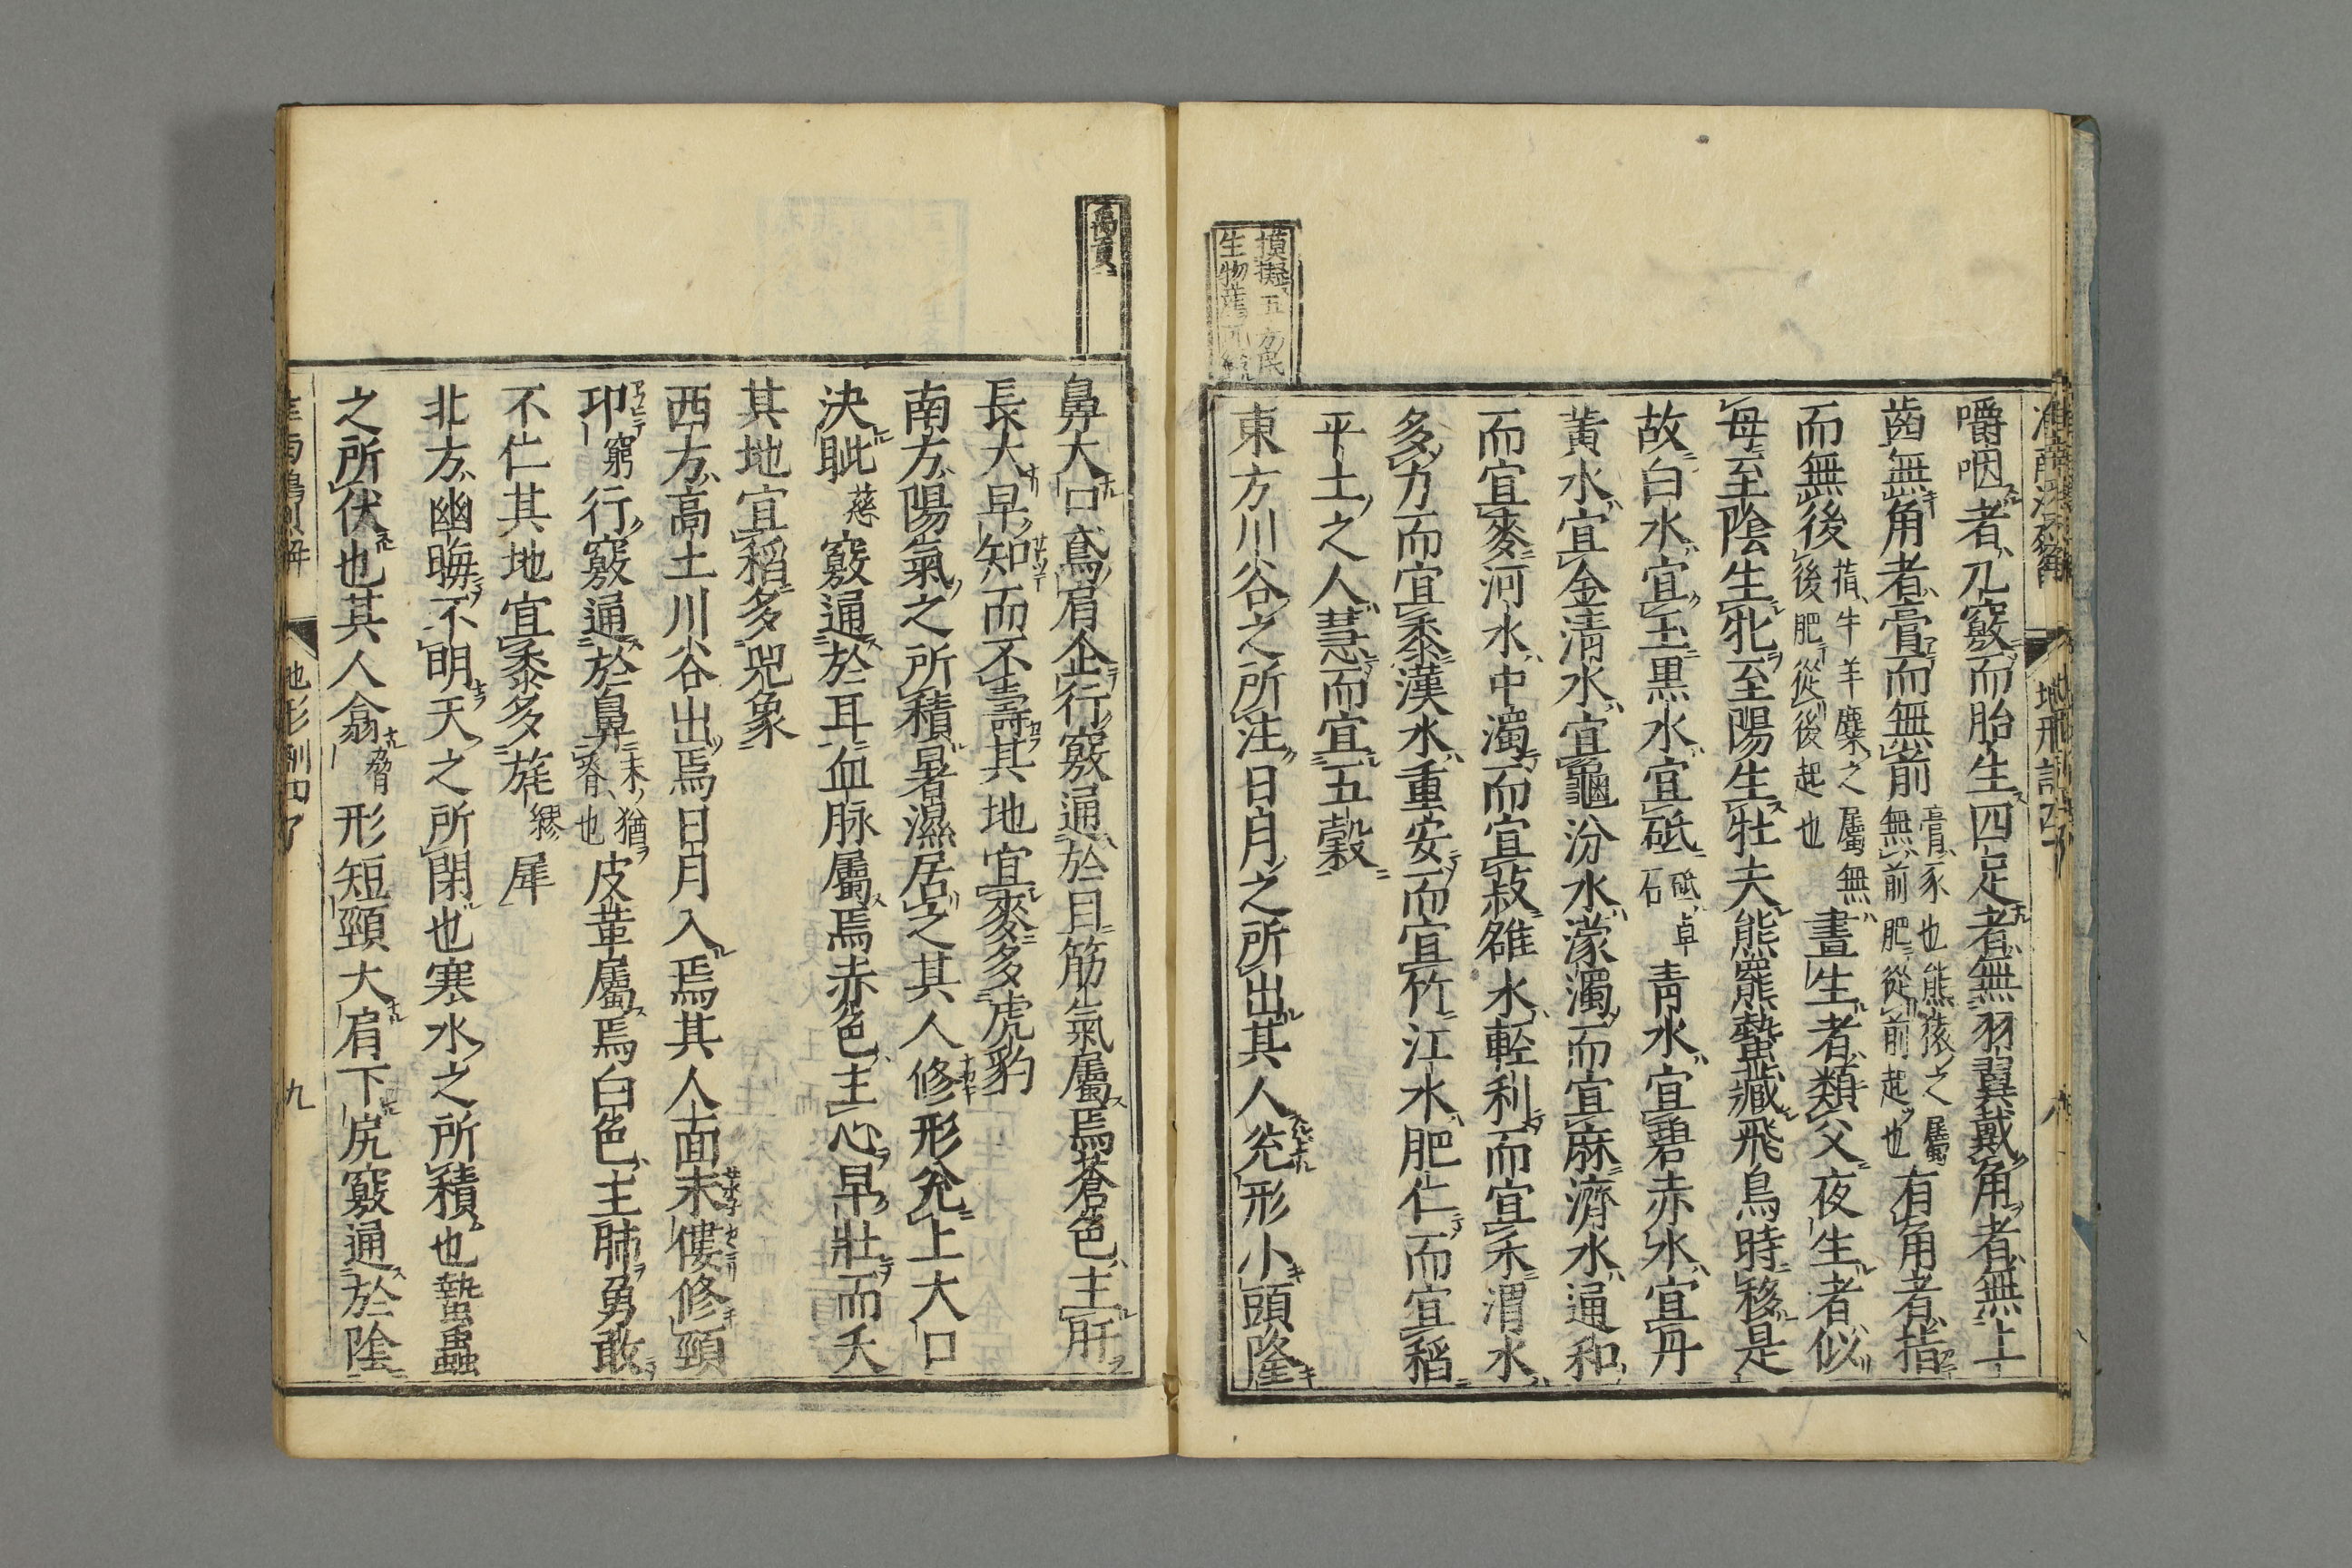 嚼咽者九竅而胎生四足者無羽翼戴角者無上
齒無角者膏而無前膏豕也熊猿之屬無前肥從前起也有角者指
而無後指牛羊麋之屬無後肥從後起也晝生者類父夜生者似
母至陰生牝至陽生牡夫熊羆蟄藏飛鳥時移是
故白水宜玉黒水宜砥砥卓石青水宜碧赤水宜丹
黃水宜金清水宜龜汾水濛濁而宜麻濟水通和
而宜麥河水中濁而宜菽雒水輕利而宜禾渭水
多力而宜黍漢水重安而宜竹江水肥仁而宜稻
平土之人慧而宜五穀
東方川谷之所注日月之所出其人兊形小頭隆
摸擬五方民
生物
鼻大口鳶肩企行竅通於目筋氣屬焉蒼色主肝
長大早知而不壽其地宜麥多虎豹
南方陽氣之所積暑濕居之其人修形兊上大口
決眦慈竅通於耳血脉屬焉赤色主心早壯而夭
其地宜稻多兕象
西方高土川谷出焉日月入焉其人面末僂修頸
卬窮行竅通於鼻末猶脊也皮革屬焉白色主肺勇敢
不仁其地宜黍多旄繆犀
北方幽晦不明天之所閉也寒水之所積也蟄蟲
之所伏也其人翕脅形短頸大肩下尻竅通於陰
地形訓四
九